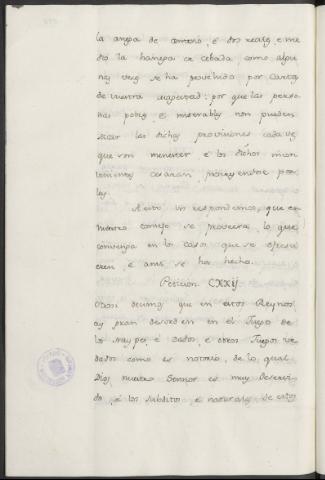 la anega de centeno, é dos reales, e me
dio la hanega de cebada, como algu
nas veces se ha provehido por Cartas
de vuestra magestad: por que las perso
nas pobres é miserables non pueden
sacar las dichas provisiones cada vez
que son menester é los dichos man
tenimientos cesaran, poniendose por
ley.
A esto vos respondemos, que en
nuestro consejo se proveera lo que
convenga en los casos que se ofreci
eren, é ansi se ha hecho.
Peticion CXXij
Otrosi decimos que en estos Reynos
ay gran desorden en el Juego de
los naypes, é dados, é otros Juegos ve
dados como es notorio, de lo qual
Dios nuestro Sennor es muy deservi
do, é los subditos é naturales de estos